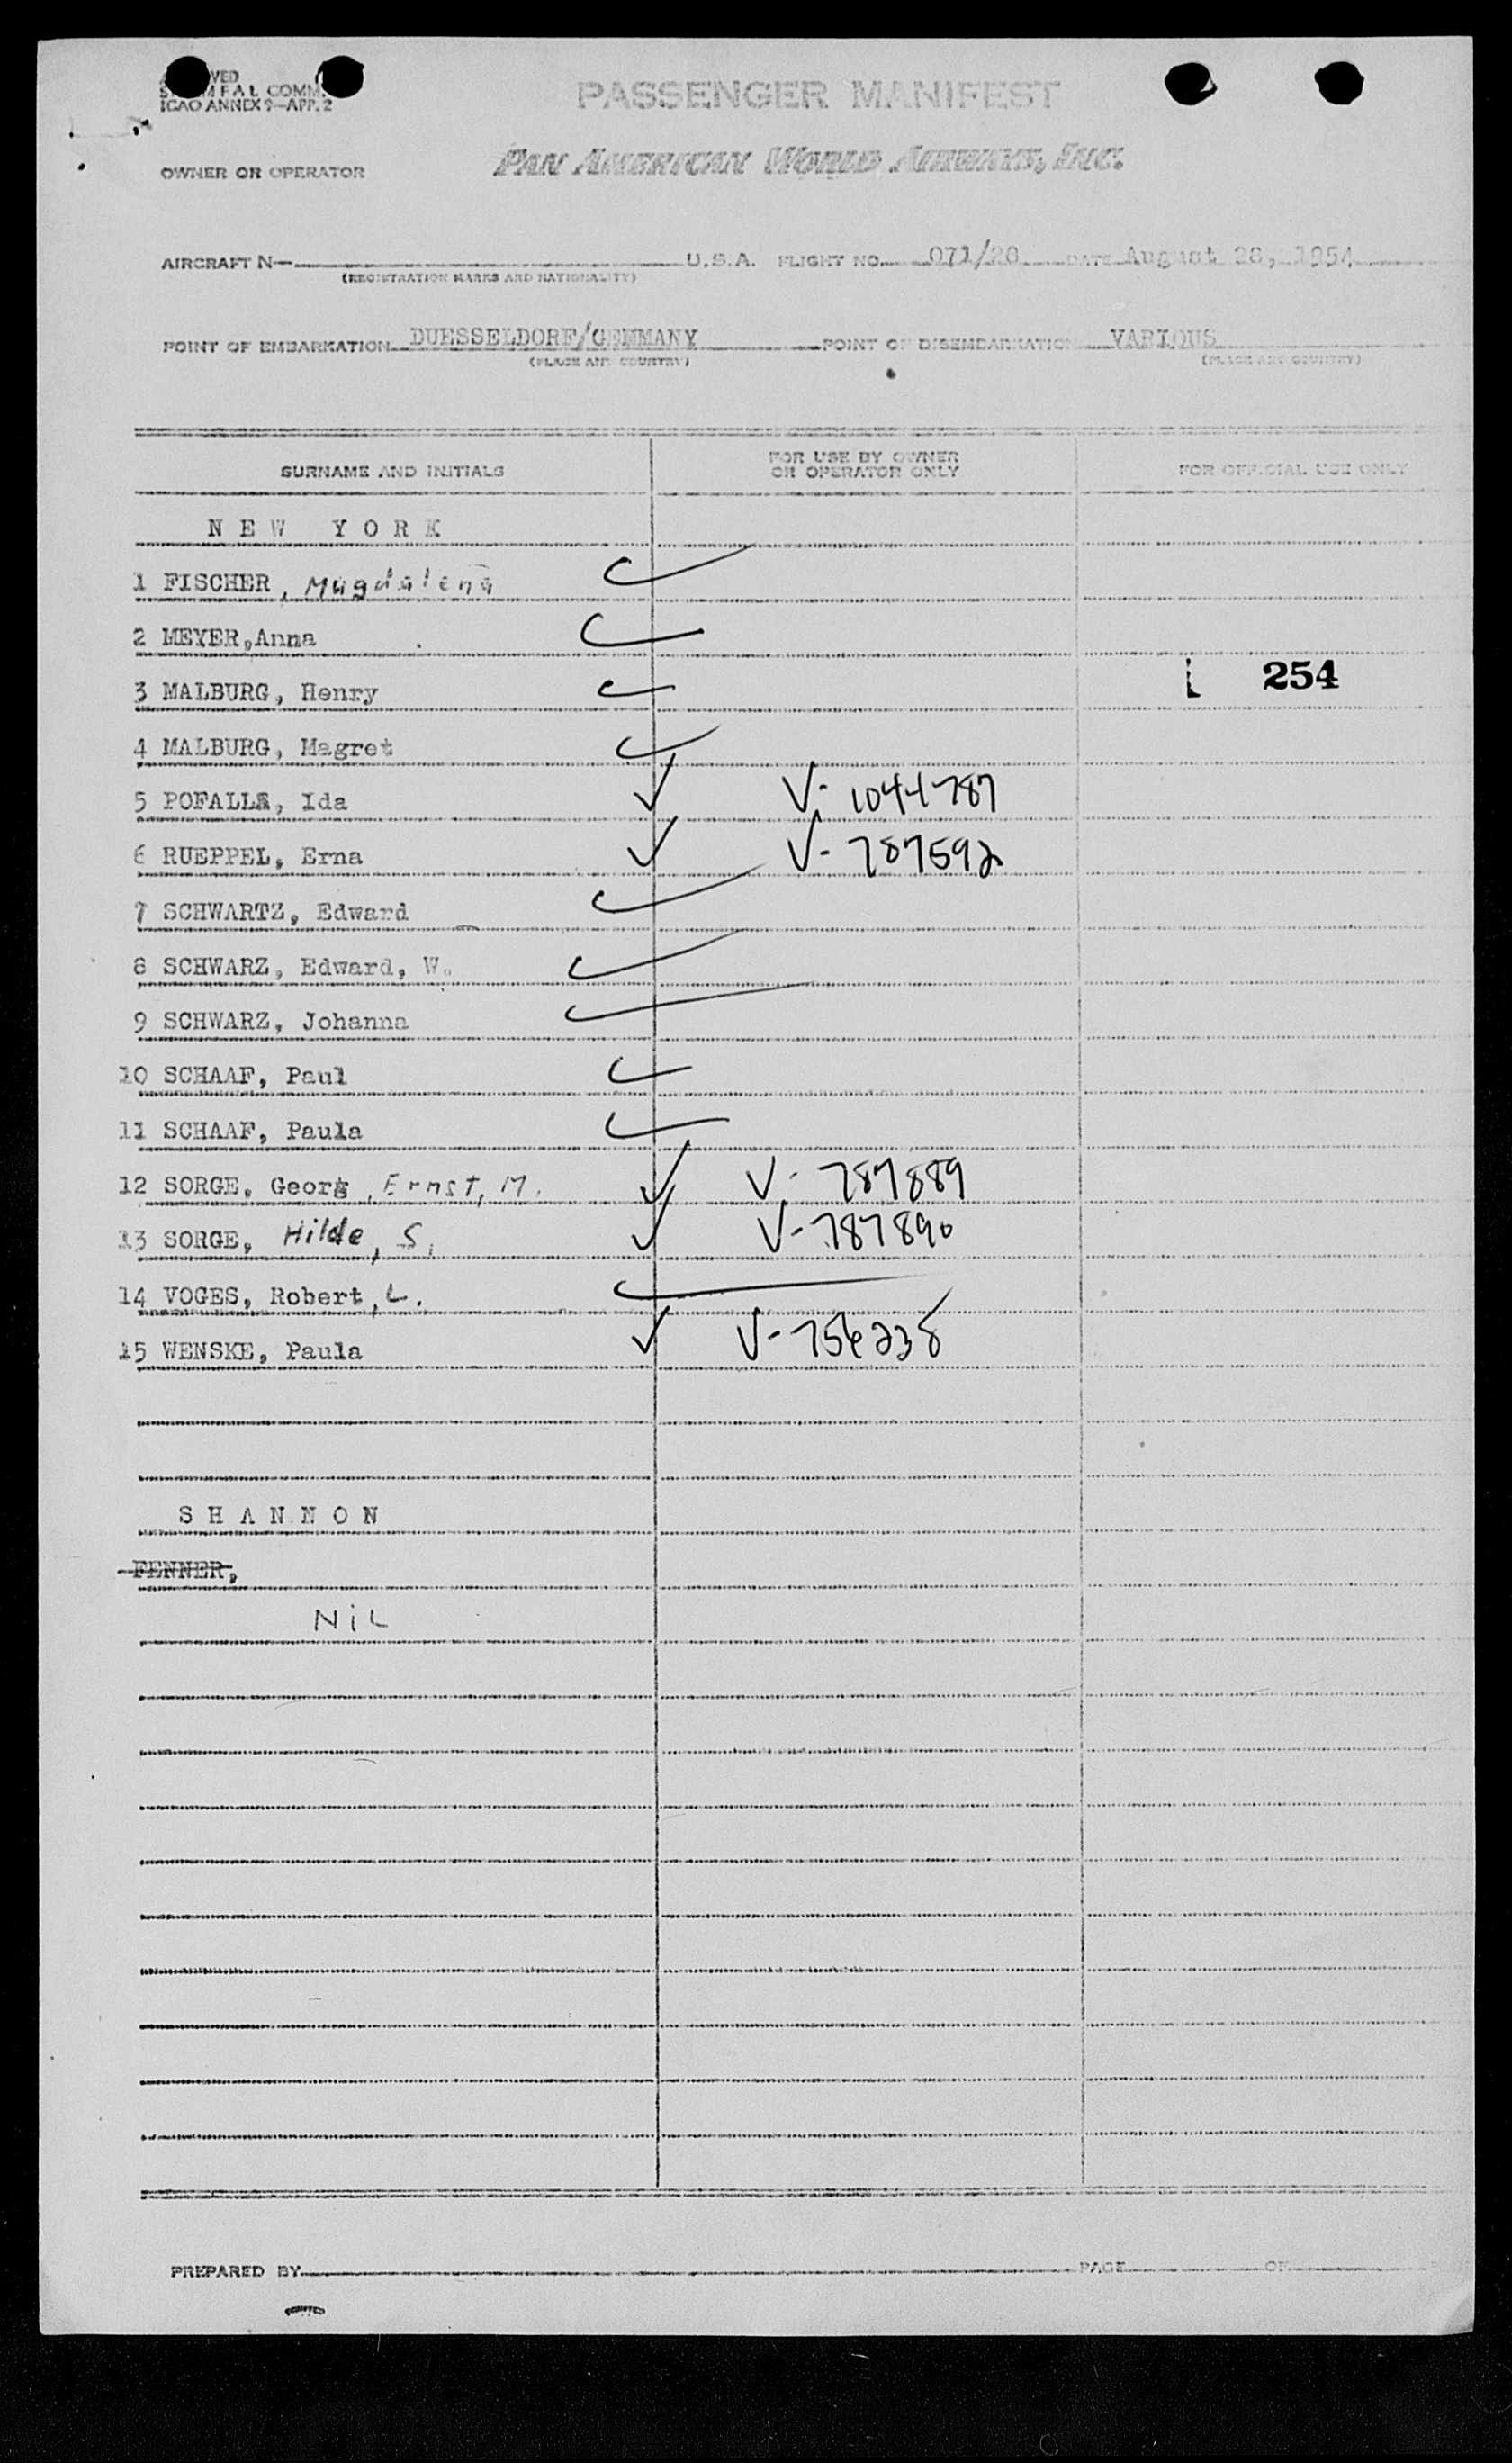 VED
M F A L COMM.
ICAO ANNEX 9—APP. 2
PASSENGER MANIFEST
OWNER OR OPERATOR PAN AMERICAN WORLD AIRWAYS, INC.
AIRCRAFT N— U.S.A. FLIGHT NO. 071/28 DATE August 28, 1954
(REGISTRATION MARKS AND NATIONALITY)
POINT OF EMBARKATION DUESSELDORF/GERMANY POINT OF DISEMBARKATION VARIOUS
(PLACE AND COUNTRY) (PLACE AND COUNTRY)
SURNAME AND INITIALS FOR USE BY OWNER OR OPERATOR ONLY FOR OFFICIAL USE ONLY
NEW YORK
1 FISCHER, Magdalena
2 MEYER,Anna
3 MALBURG, Henry 254
4 MALBURG, Magret
5 POFALLA, Ida V- 1044787
6 RUEPPEL, Erna V- 787592
7 SCHWARTZ, Edward
8 SCHWARZ, Edward, W.
9 SCHWARZ, Johanna
10 SCHAAF, Paul
11 SCHAAF, Paula
12 SORGE, Georg, Ernst, M. V- 787889
13 SORGE, Hilde, S. V-787890
14 VOGES, Robert, L.
15 WENSKE, Paula V-756238
SHANNON
FENNER,
NiL
PREPARED BY PAGE OF